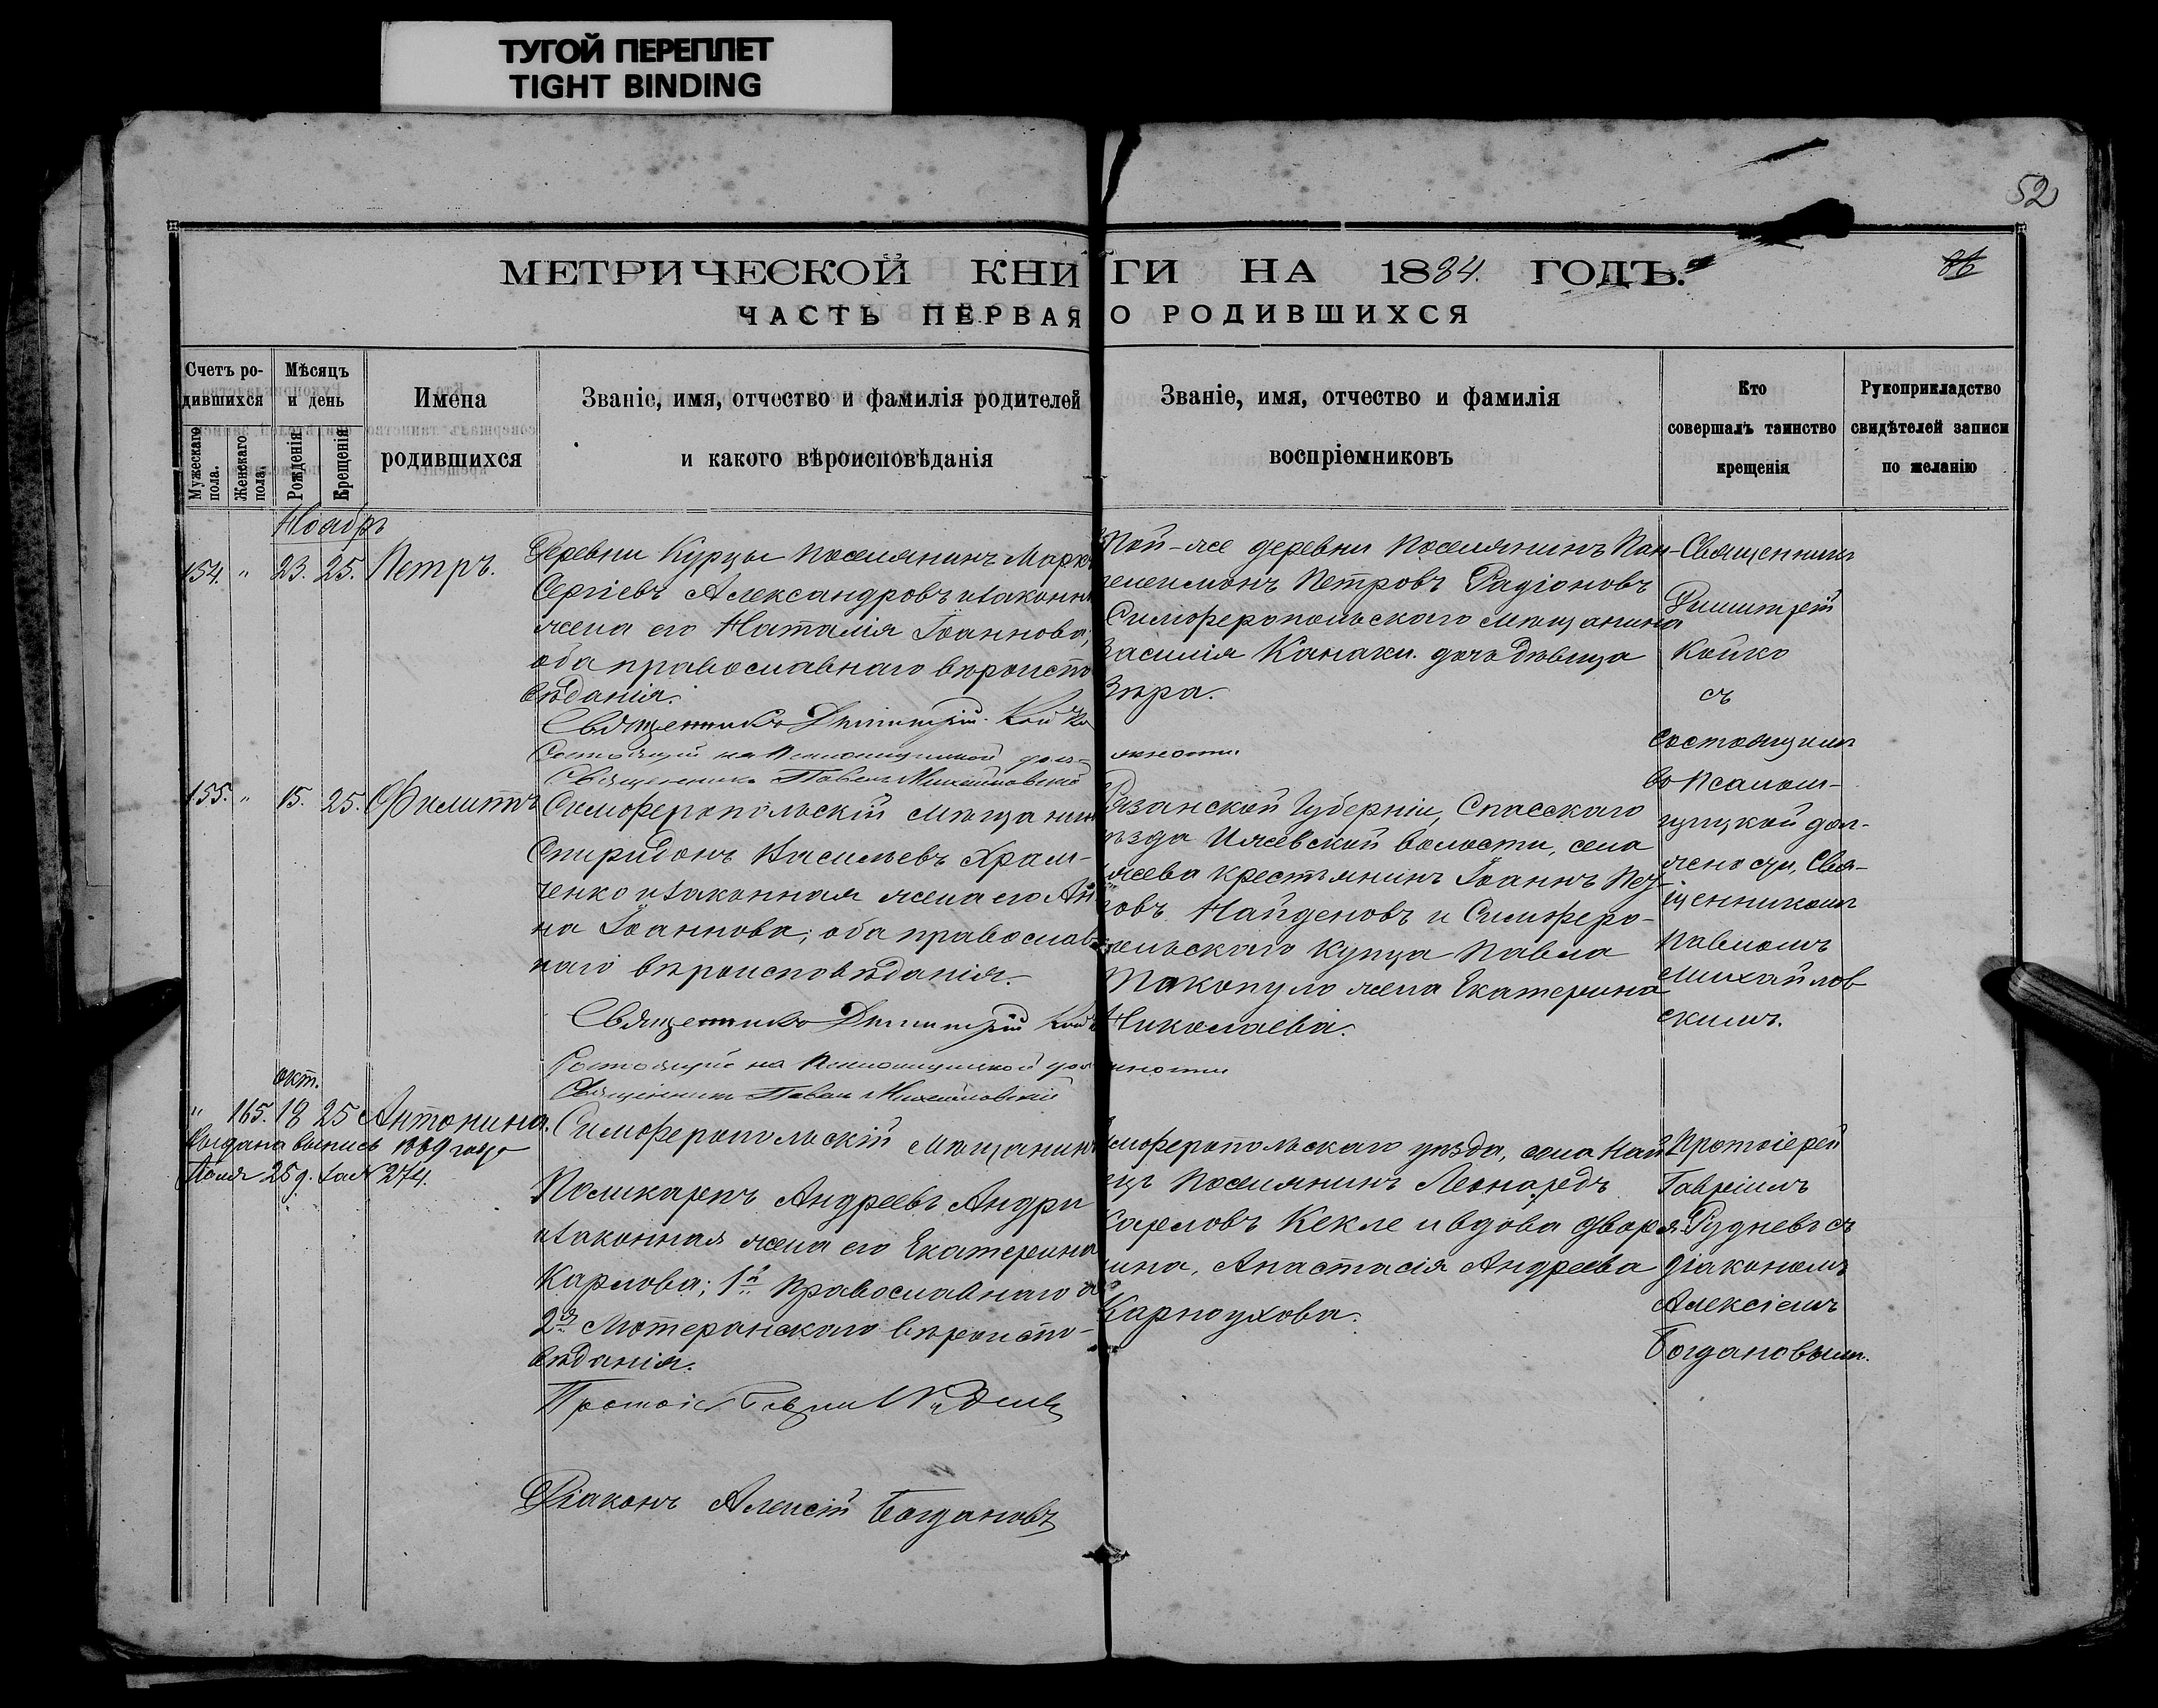 ТУГОЙ ПЕРЕПЛЕТ
TIGHT BINDING
52
МЕТРИЧЕСКОЙ КНИГИ НА 1884. ГОДЪ.
86
ЧАСТЬ ПЕРВАЯ О РОДИВШИХСЯ
Счетъ родившихся
Мужескаго пола.
Женскаго пола.
Мѣсяцъ и день
Рожденія
Крещенія
Имена родившихся
Званіе, имя, отчество и фамилія родителей
и какого вѣроисповѣданія
Званіе, имя, отчество и фамилія
воспріемниковъ
Кто
совершалъ таинство
крещенія
Рукоприкладство
свидѣтелей записи
по желанію
Ноябрь
154. " 23. 25. Петръ.
Деревни Курцы поселянинъ Маркъ
Сергіевъ Александровъ и законн
жена его Наталія Іоаннова,
оба православнаго вѣроиспо
вѣданія.
Священникъ Димитрій Койко
Состоящій на Псаломщицкой должности
Священникъ Павелъ Михайловскій
Той-же деревни поселянинъ Пан-
телеимонъ Петровъ Радіоновъ
Симферопольскаго мѣщанина
Василія Канаки дочь дѣвица
Вѣра.
Священникъ
Димитрій
Койко
съ
состоящимъ
въ Псалом-
щицкой дол-
жности, Свя-
щенникомъ
Павломъ
Михайлов
скимъ.
155. " 15. 25. Филиппъ
Симферопольскій мѣщанинъ
Спиридонъ Васильевъ Храм-
ченко и законная жена его Ан
на Іоаннова; оба православ
наго вѣроисповѣданія.
Священникъ Димитрій Койко
Состоящій на Псаломщицкой должности
Священникъ Павелъ Михайловскій
Рязанской Губерніи, Спасскаго
уѣзда Ижевской волости, села
Ижева крестьянинъ Іоаннъ Пет
ровъ Найденовъ и Симферо-
польскаго купца Павла
жена Екатерина
Николаева.
окт.
" 165. 18 25 Антонина.
Выдана выпись 1889 года
25 д. за № 274.
Симферопольскій мѣщанинъ
Поликарпъ Андреевъ Андри
и законная жена его Екатерина
Карлова; 1й православнаго а
2я Лютеранскаго вѣроиспо-
вѣданія.
Протоіерей Гавріилъ Рудневъ
Діаконъ Алексій Богдановъ
Симферопольскаго уѣзда, села Най
цъ поселянинъ Леонардъ
Карловъ Кекле и вдова дворя
нина, Анастасія Андреева
Карпоухова.
Протоіерей
Гавріилъ
Рудневъ съ
діакономъ
Алексіемъ
Богдановымъ.